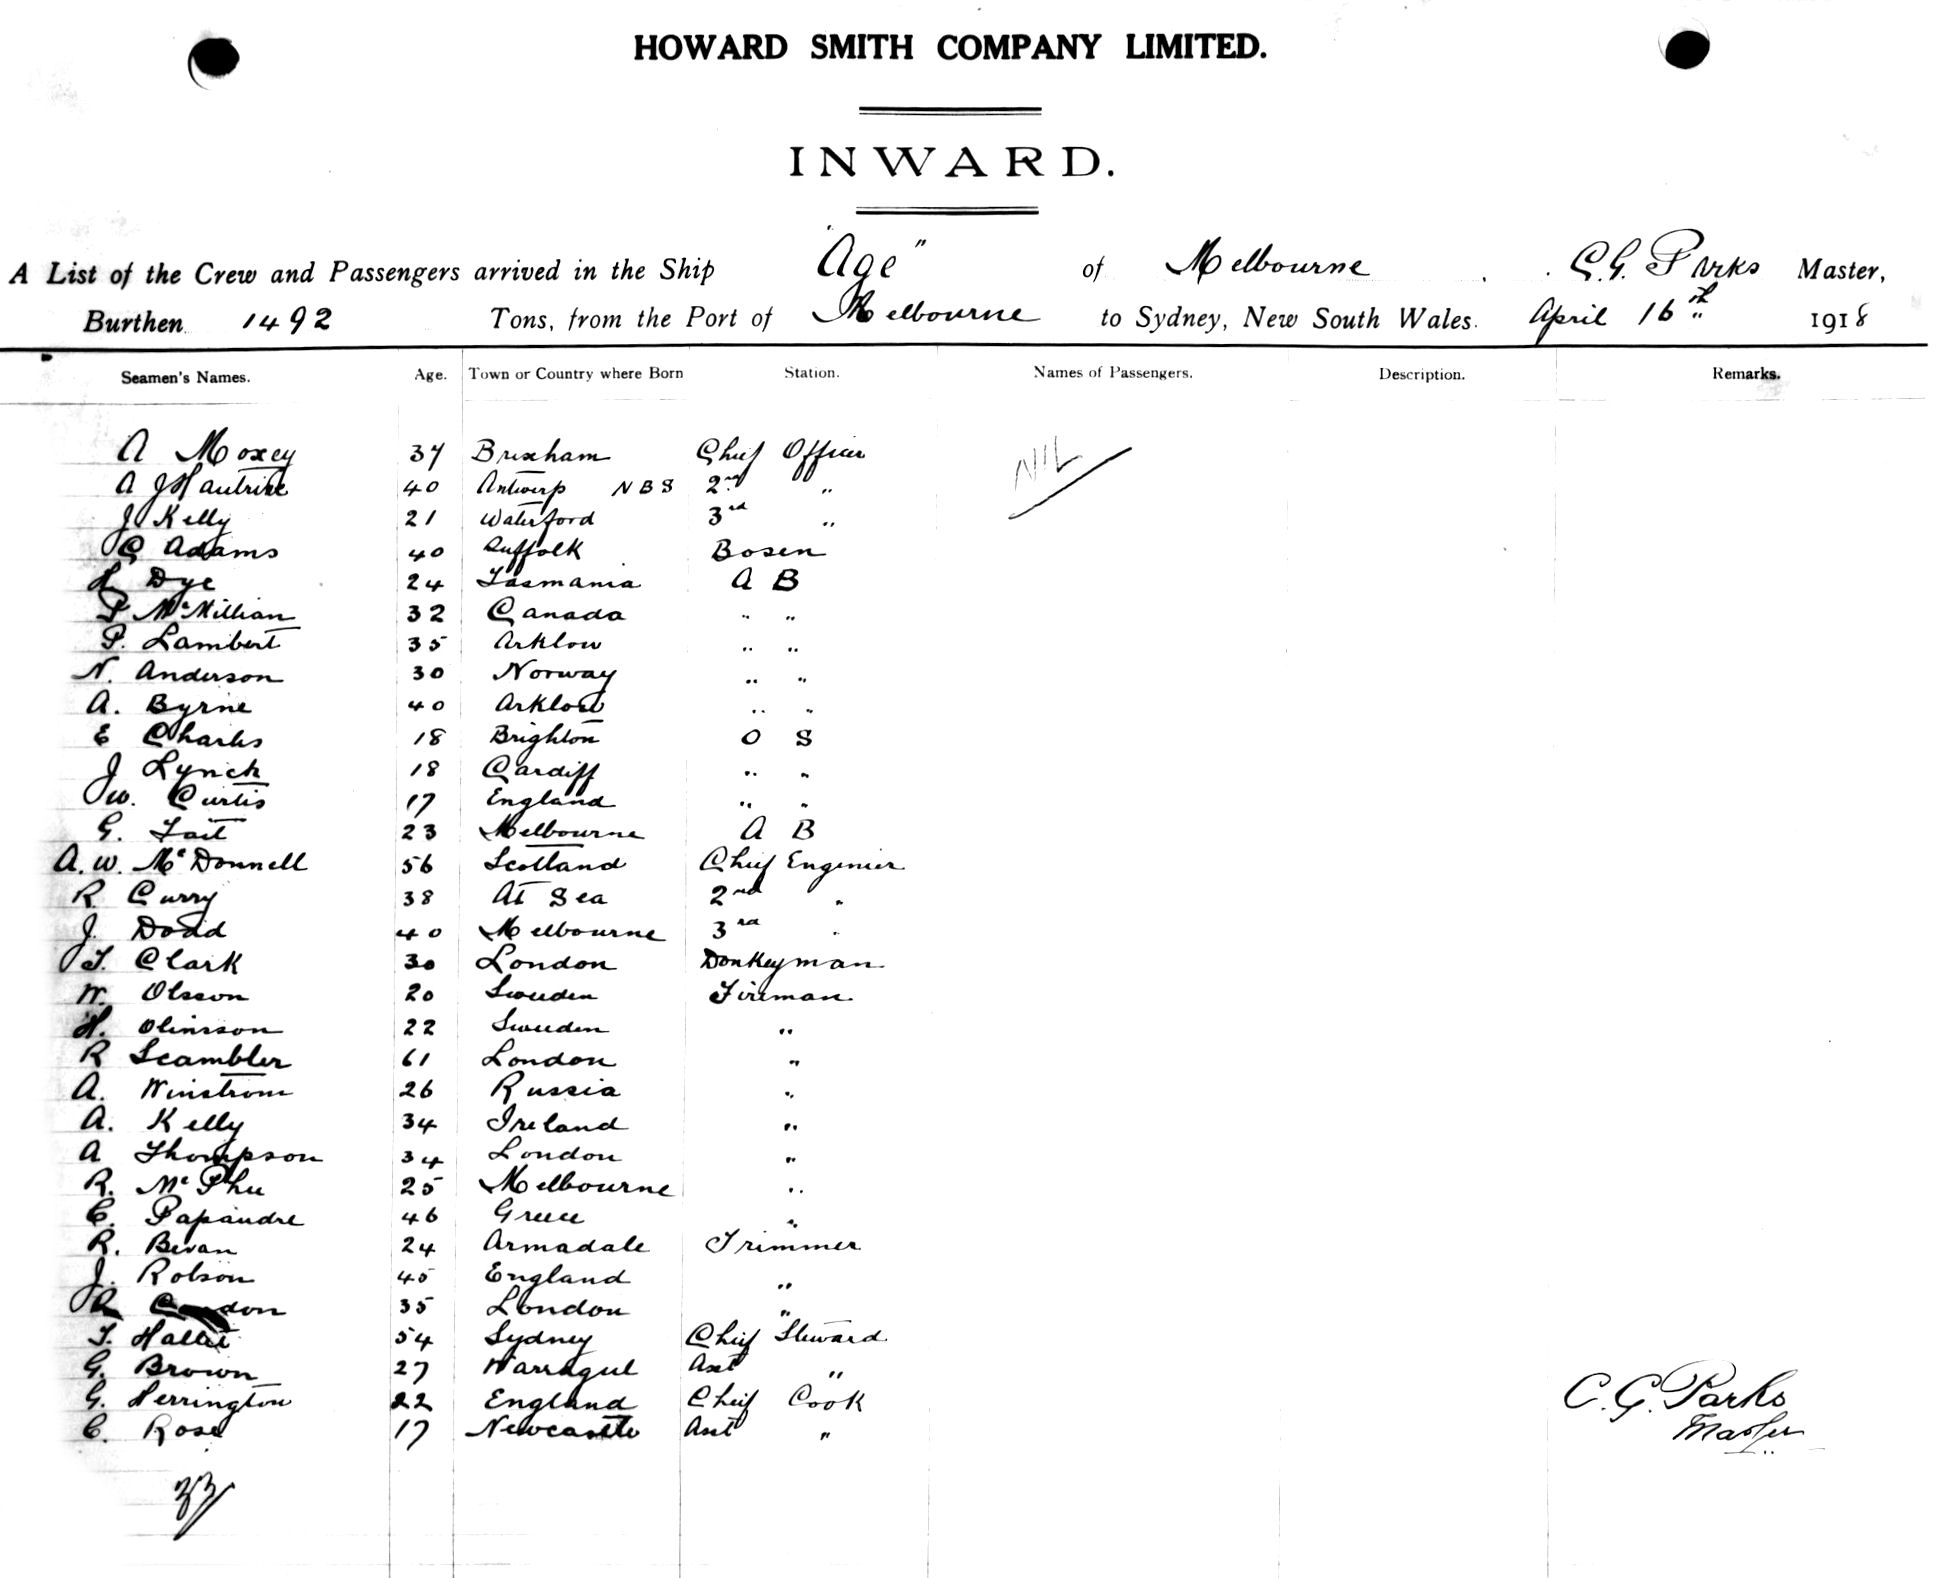 HOWARD SMITH COMPANY LIMITED.
INWARD.
A List of the Crew and Passengers arrived in the Ship "Age" of Melbourne C.G. Parks Master,
Burthen 1492 Tons, from the Port of Melbourne to Sydney, New South Wales. April 16th 1918
Seamen's Names. Age. Town or Country where Born Station. Names of Passengers. Description. Remarks.
A Moxey 37 Brixham Chief Officer NIL
A J 40 Antwerp NBS 2nd "
J Kelly 21 Waterford 3rd "
C Adams 40 Suffolk Bosen
H Dye 24 Tasmania A B
P McMillian 32 Canada " "
P. Lambert 35 Arklow " "
N. Anderson 30 Norway " "
A. Byrne 40 Arklow " "
E Charles 18 Brighton O S
J Lynch 18 Cardiff " "
W. Curtis 17 England " "
G. Tait 23 Melbourne A B
A. W. McDonnell 56 Scotland Chief Enginier
R Curry 38 At Sea 2nd "
J. Dodd 40 Melbourne 3rd "
T. Clark 30 London Donkeyman
W. Olsson 20 Sweden Fireman
H. 22 Sweden "
R Scambler 61 London "
A. Winstrom 26 Russia "
A. Kelly 34 Ireland "
A Thompson 34 London "
R. McPhee 25 Melbourne "
C. Papandre 46 Greece "
R. Bevan 24 Armadale Trimmer
J. Robson 45 England "
R 35 London "
T. Hallet 54 Sydney Chief Steward
G. Brown 27 Warragul Asst "
G. Herrington 22 England Chief Cook C. G. Parks
C. Rose 17 Newcastle Asst " Master
33